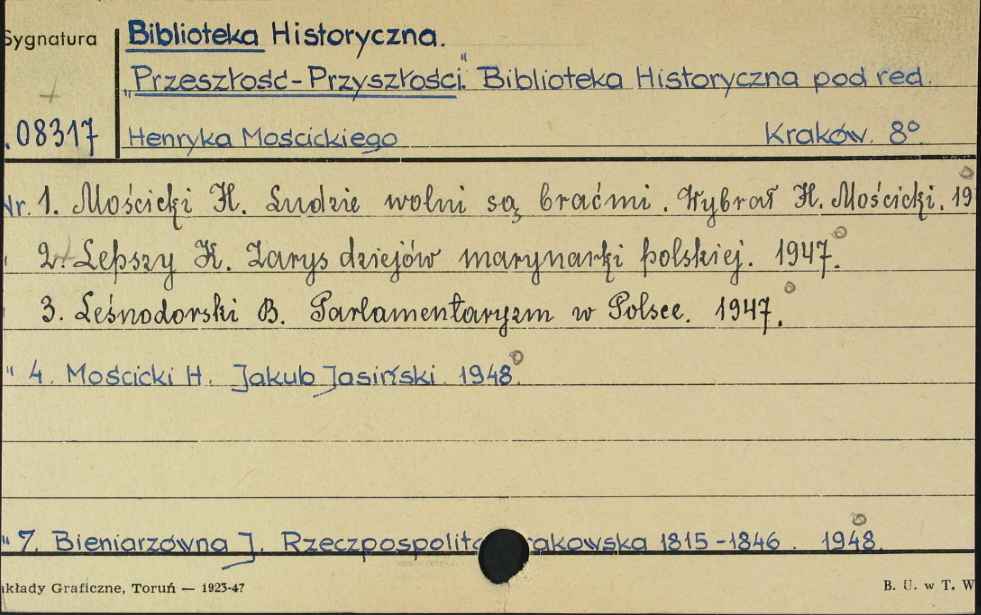 Sygnatura Biblioteka Historyczna.
„Przeszłość-Przyszłości." Biblioteka Historyczna pod red.
.08317 Henryka Mościckiego Kraków. 8°.
Nr. 1. Mościcki H. Ludzie wolni są braćmi. Wybrał H. Mościcki. 19
2. Lepszy K. Zarys dziejów marynarki polskiej. 1947.
3. Leśnodorski B. Parlamentaryzm w Polsce. 1947.
" 4. Mościcki H. Jakub Jasiński. 1948.
" 7. Bieniarzówna J. Rzeczpospolita akowska 1815-1846. 1948.
akłady Graficzne, Toruń — 1925-47 B. U. w T. W